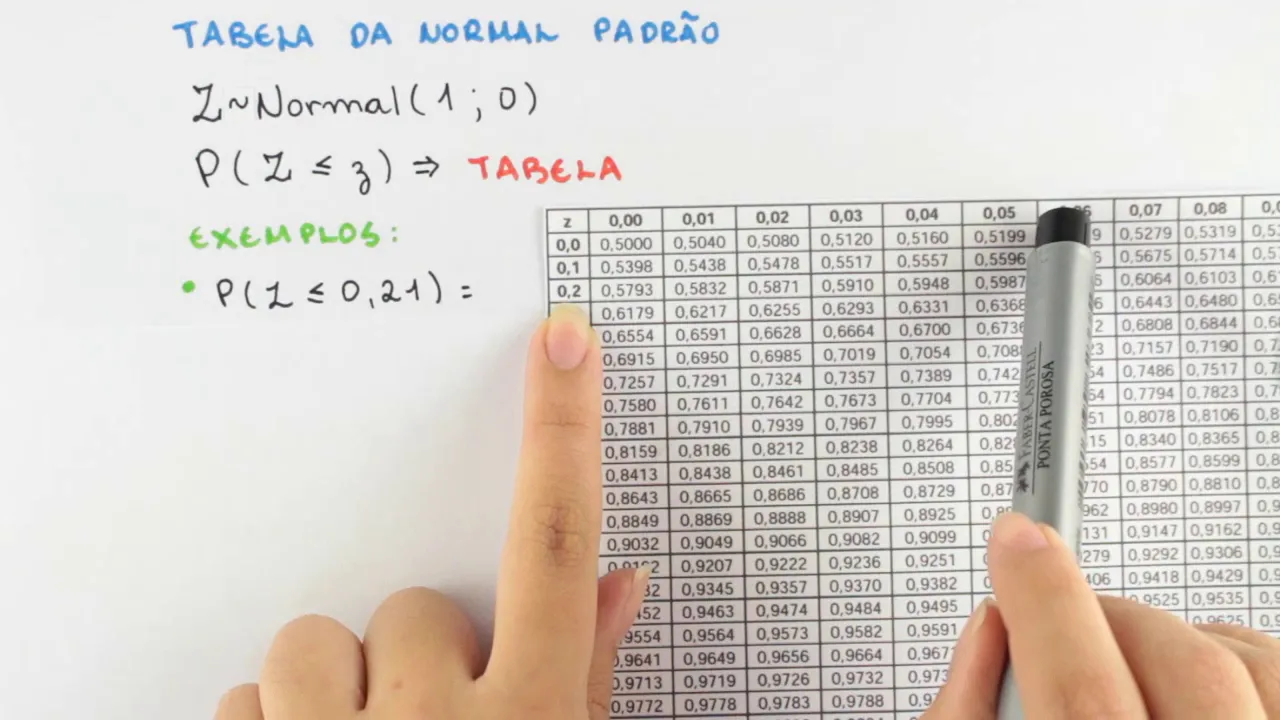 TABELA DA NORMAL PADRÃO
Z~Normal(1 ; 0)
P(Z ≤ z) ⇒ TABELA
EXEMPLOS:
• P(Z ≤ 0,21) =
z 0,00 0,01 0,02 0,03 0,04 0,05 0,07 0,08
0,0 0,5000 0,5040 0,5080 0,5120 0,5160 0,5199 0,5279 0,5319
0,1 0,5398 0,5438 0,5478 0,5517 0,5557 0,5596 0,5675 0,5714
0,2 0,5793 0,5832 0,5871 0,5910 0,5948 0,5987 0,6064 0,6103
0,6179 0,6217 0,6255 0,6293 0,6331 0,6368 0,6443 0,6480
0,6554 0,6591 0,6628 0,6664 0,6700 0,6736 0,6808 0,6844
0,6915 0,6950 0,6985 0,7019 0,7054 0,7157 0,7190
0,7257 0,7291 0,7324 0,7357 0,7389 0,7486 0,7517
0,7580 0,7611 0,7642 0,7673 0,7704 0,7794 0,7823
0,7881 0,7910 0,7939 0,7967 0,7995 0,8078 0,8106
0,8159 0,8186 0,8212 0,8238 0,8264 0,8340 0,8365
0,8413 0,8438 0,8461 0,8485 0,8508 0,8577 0,8599
0,8643 0,8665 0,8686 0,8708 0,8729 0,8790 0,8810
0,8849 0,8869 0,8888 0,8907 0,8925 0,8980 0,8997
0,9032 0,9049 0,9066 0,9082 0,9099 0,9147 0,9162
0,9207 0,9222 0,9236 0,9251 0,9292 0,9306
0,9345 0,9357 0,9370 0,9382 0,9418 0,9429
0,9463 0,9474 0,9484 0,9495 0,9525 0,9535
0,9564 0,9573 0,9582 0,9591 0,9625
0,9641 0,9649 0,9656 0,9664
0,9713 0,9719 0,9726 0,9732
0,9772 0,9778 0,9783 0,9788
FABER-CASTELL
PONTA POROSA